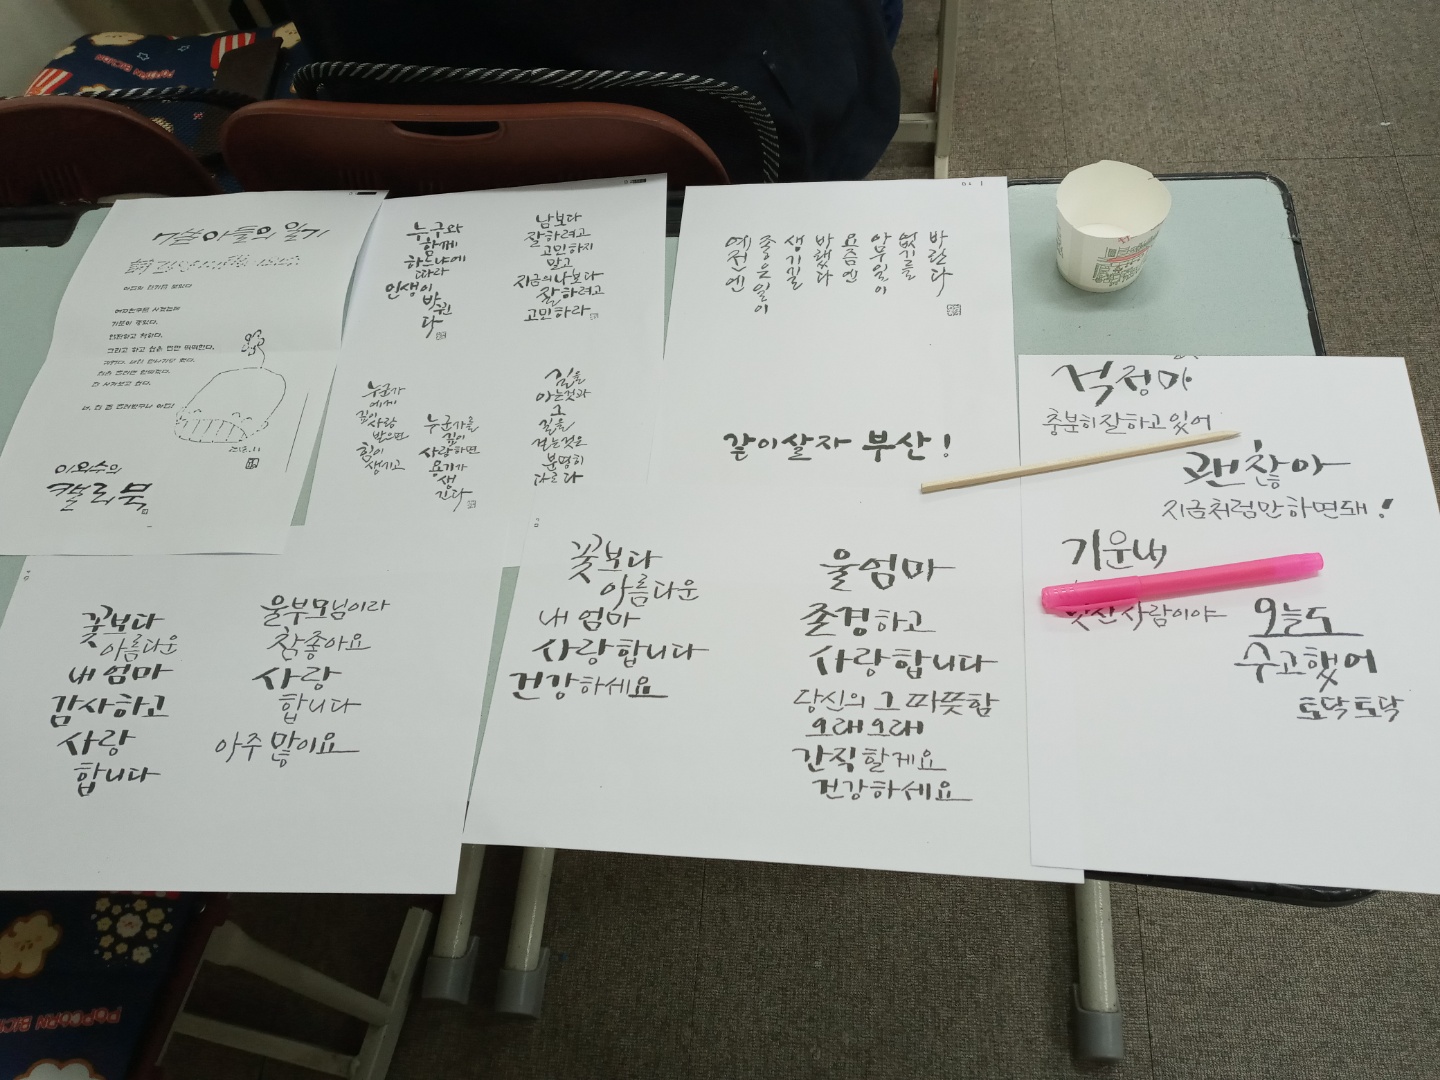 아들의 일기
이외수의
캘리북
누구와
함께
하느냐에
따라
인생이
바뀐
다
남보다
잘하려고
고민하지
말고
지금의 나보다
잘하려고
고민하라
누군가
에게
깊이
사랑
받으면
힘이
생기고
누군가를
깊이
사랑하면
용기가
생
긴다
길을
아는것과
그
길을
걷는것은
분명히
다르다
예전엔
좋은일이
생기길
바랬다
요즘엔
아무일이
없기를
바란다
같이살자 부산!
걱정마
충분히 잘하고 있어
괜찮아
지금처럼만 하면돼!
기운내
멋진 사람이야
오늘도
수고했어
토닥토닥
꽃보다
아름다운
내 엄마
감사하고
사랑
합니다
울부모님이라
참좋아요
사랑
합니다
아주 많이요
꽃보다
아름다운
내 엄마
사랑합니다
건강하세요
울엄마
존경하고
사랑합니다
당신의 그 따뜻함
오래오래
간직할게요
건강하세요
POPCORN